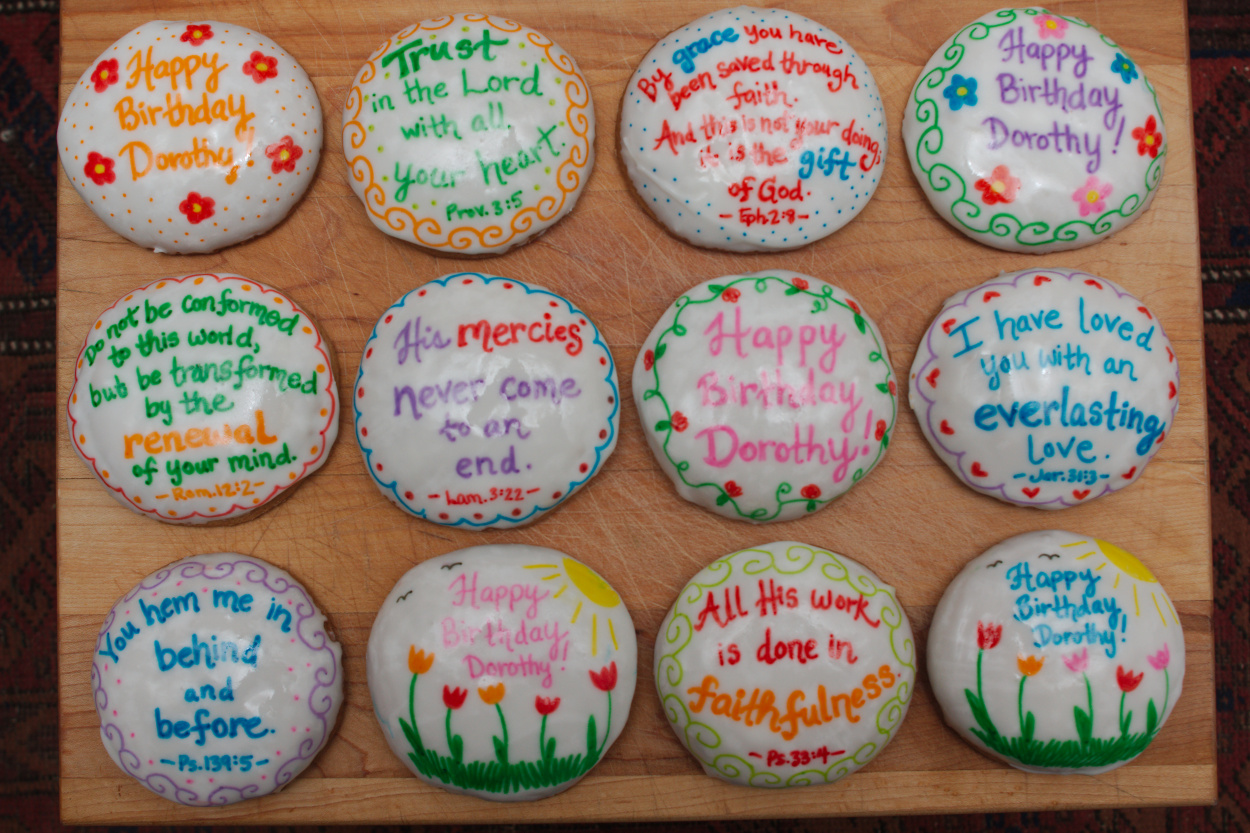 Happy
Birthday
Dorothy!
Trust
in the Lord
with all
your heart.
Prov. 3:5
By grace you have
been saved through
faith.
And this is not your doing,
it is the gift
of God.
- Eph. 2:8 -
Happy
Birthday
Dorothy!
Do not be conformed
to this world,
but be transformed
by the
renewal
of your mind.
- Rom. 12:2 -
His mercies
never come
to an
end.
- Lam. 3:22 -
Happy
Birthday
Dorothy!
I have loved
you with an
everlasting
love.
- Jer. 31:3 -
You hem me in
behind
and
before.
- Ps. 139:5 -
Happy
Birthday
Dorothy!
All His work
is done in
faithfulness.
- Ps. 33:4 -
Happy
Birthday
Dorothy!